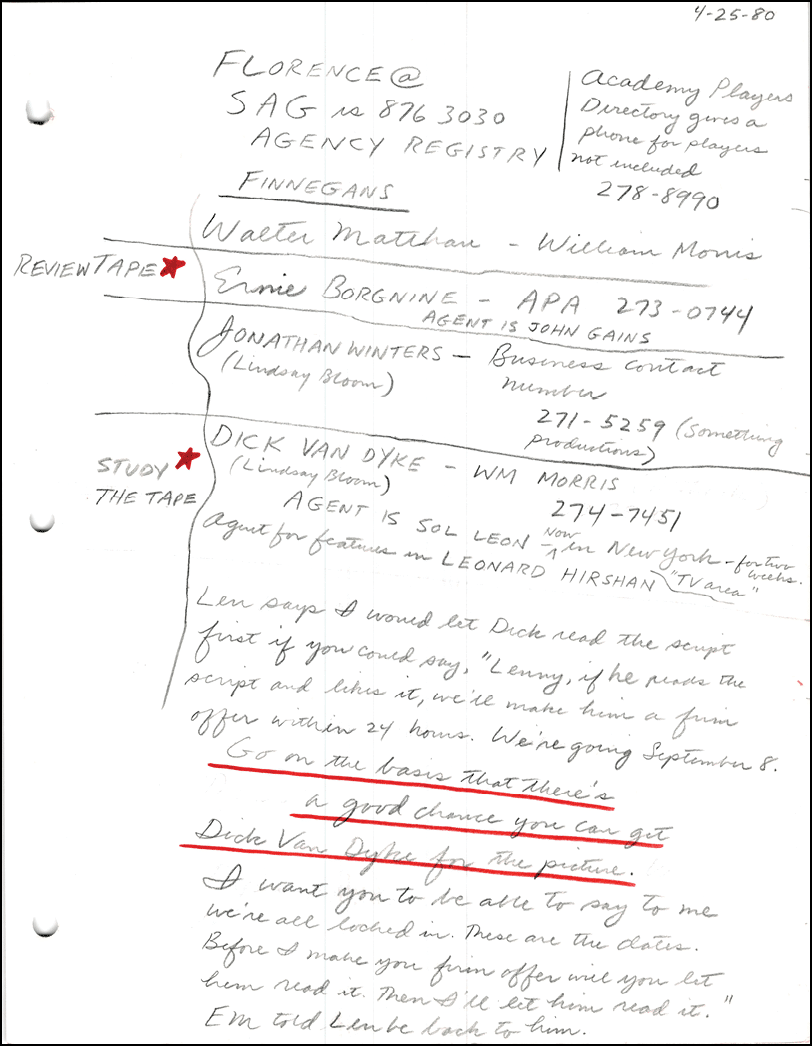 4-25-80
FLORENCE @
SAG is 876 3030
AGENCY REGISTRY
Academy Players
Directory gives a
phone for players
not included
278-8990
FINNEGANS
Walter Matthau - William Morris
REVIEW TAPE
Ernie BORGNINE - APA 273-0744
AGENT IS JOHN GAINS
JONATHAN WINTERS - Business Contact
(Lindsay Bloom) number
271-5259 (Something
productions)
STUDY
THE TAPE
DICK VAN DYKE - WM MORRIS
(Lindsay Bloom) 274-7451
AGENT IS SOL LEON Now in New York - for two
weeks.
Agent for features in LEONARD HIRSHAN "TV area"
Len says I would let Dick read the script
first if you could say, "Lenny, if he reads the
script and likes it, we'll make him a firm
offer within 24 hours. We're going September 8.
Go on the basis that there's
a good chance you can get
Dick Van Dyke for the picture.
I want you to be able to say to me
we're all locked in. These are the dates.
Before I make you firm offer will you let
him read it. Then I'll let him read it."
EM told Len be back to him.